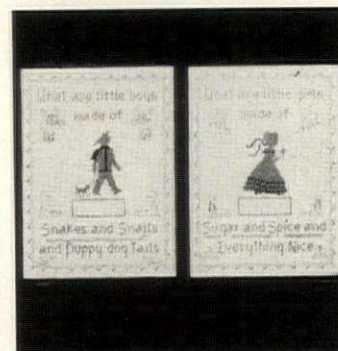 What are little boys
made of
Snakes and Snails
and Puppy dog Tails
What are little girls
made of
Sugar and Spice and
Everything Nice